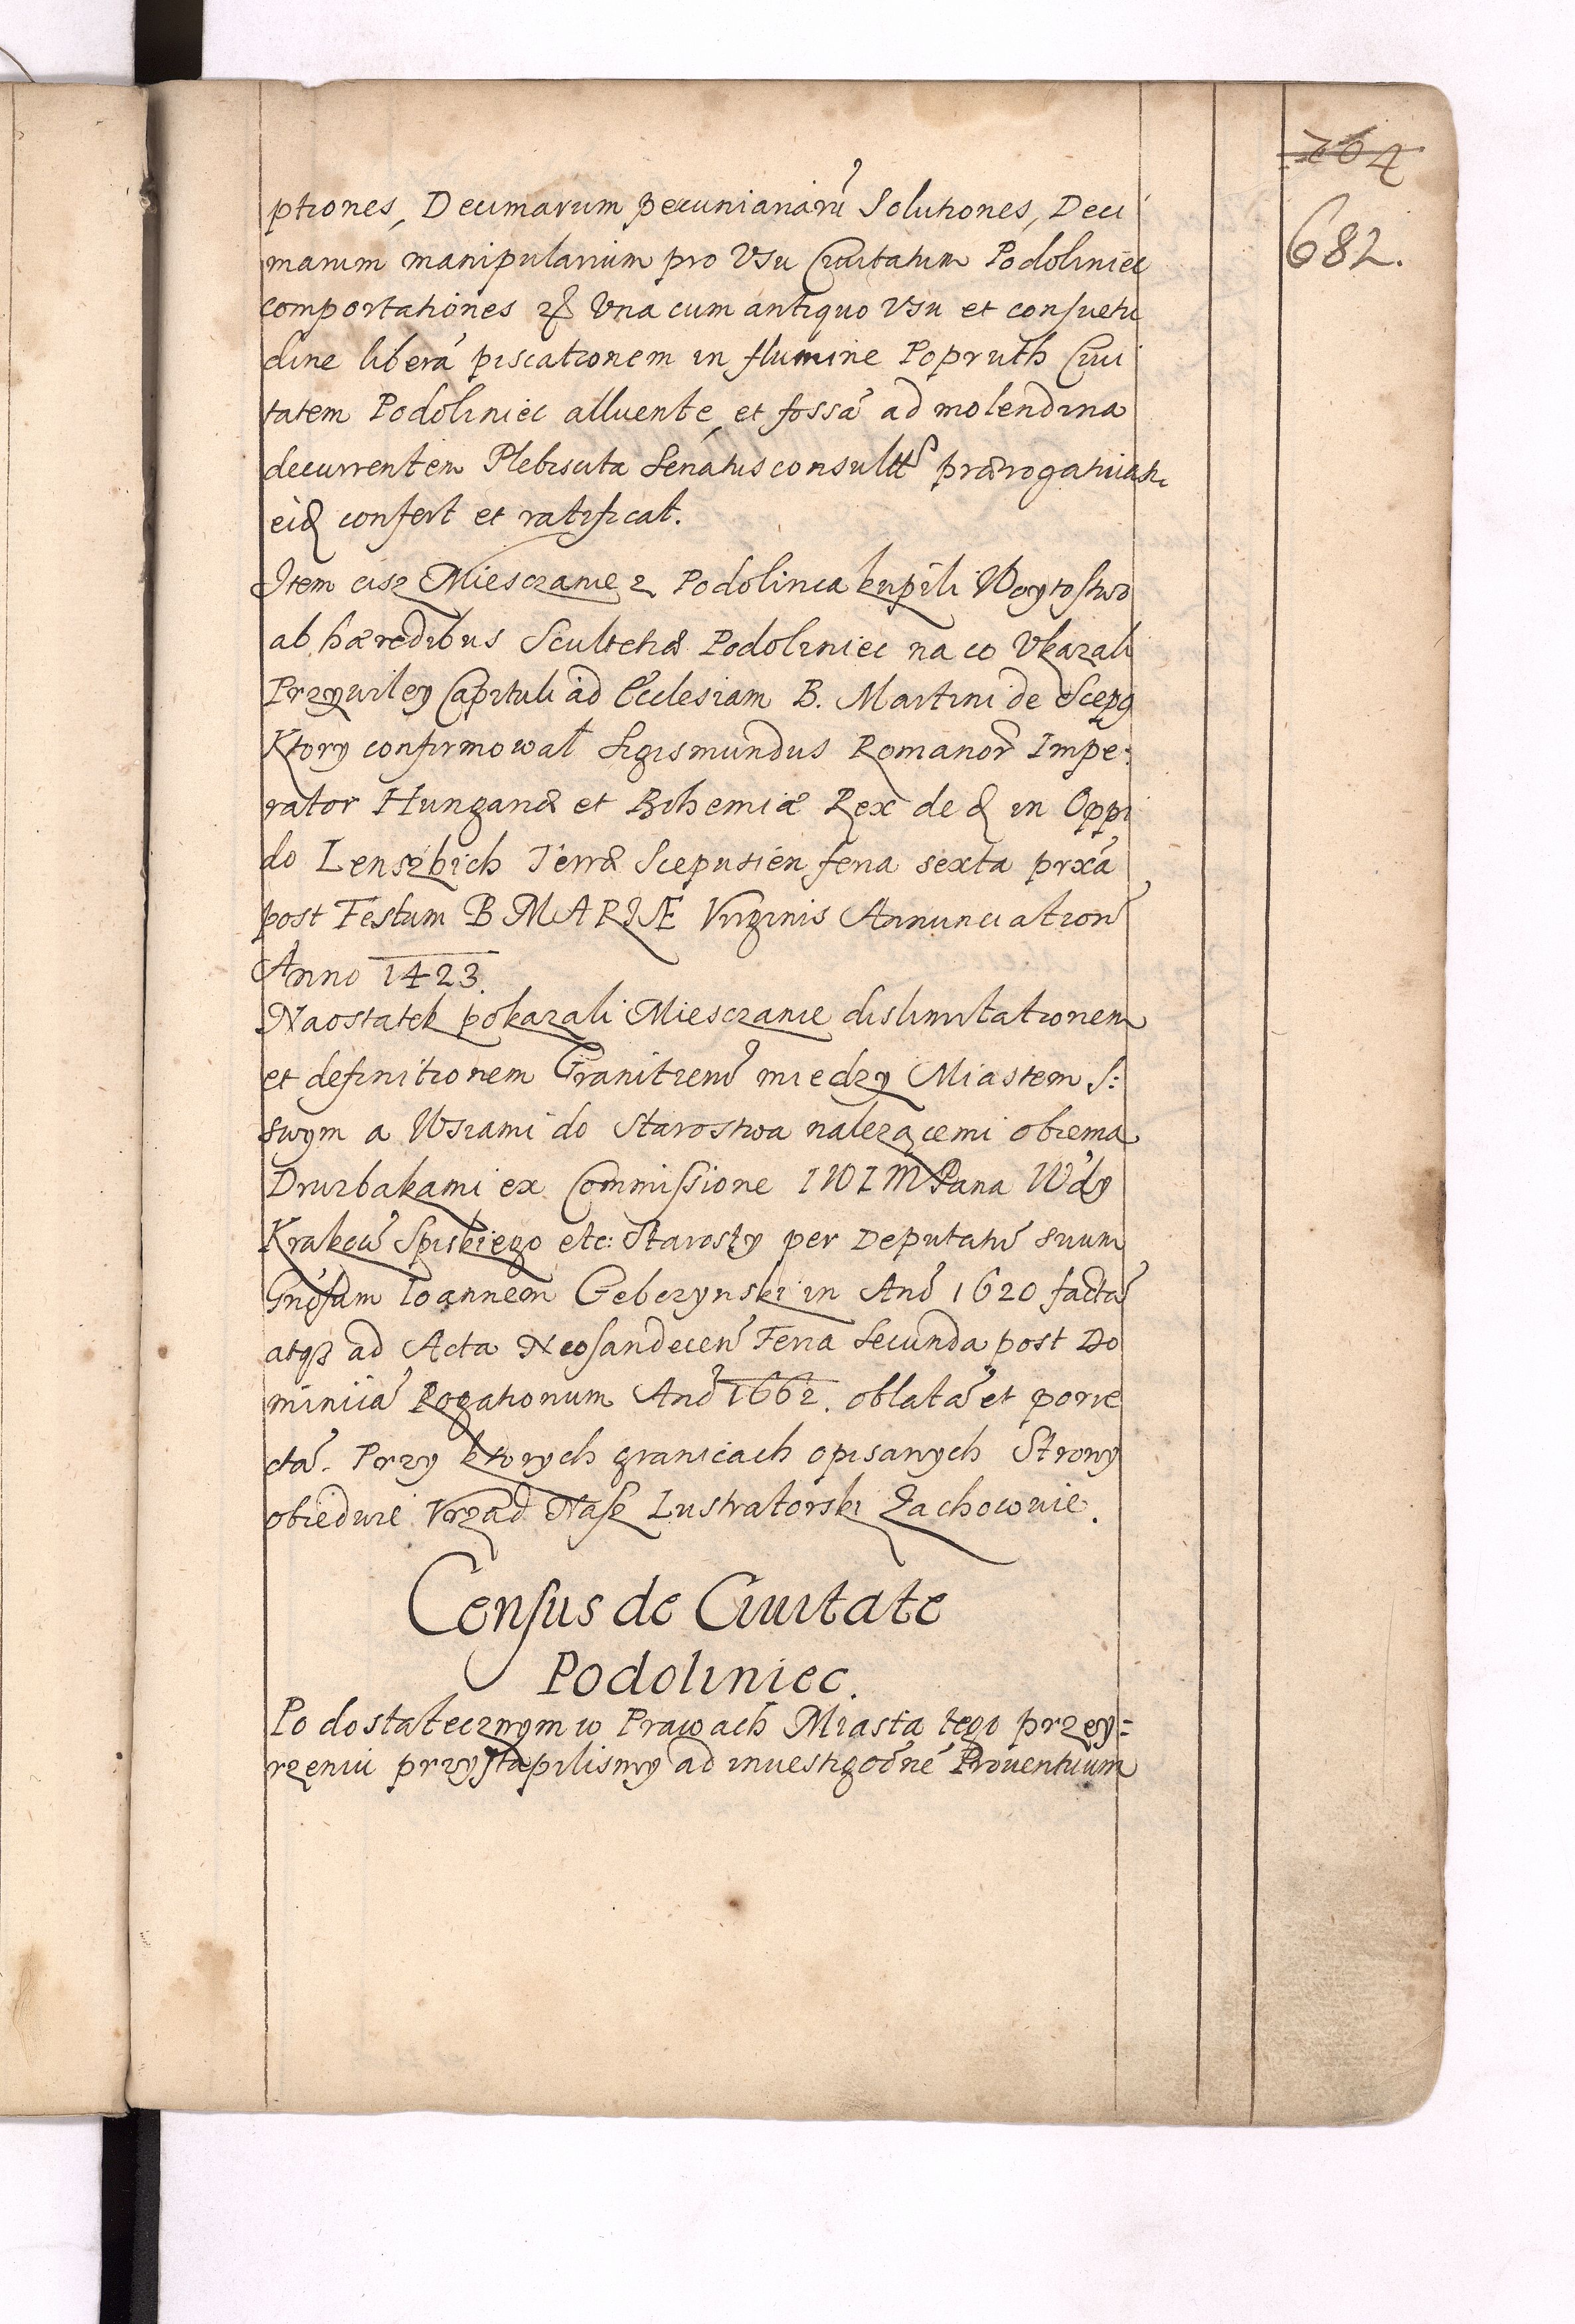 704
682.
ptiones, Decimarum pecuniariarũ Solutiones, Deci
marum manipularium pro Vsu Ciuitatum Podoliniec
comportationes Vna cum antiquo Vsu et consuetu
dine liberã piscationem in flumine Popruth Ciui
tatem Podoliniec alluente, et fossã ad molendina
decurrentem Plebiscita Senatus consulta prærogatiuas
confert et ratificat.
Item cisz Miesczanie z Podolinca kupili Woytostwo
ab hæredibus Scultetiæ Podoliniec na co Vkazali
Przywiley Capituli ad Ecclesiam B. Martini de Scepg
Ktory confirmował Sigismundus Romanor̃ Impe:
rator Hungariæ et Bohemiæ Rex de in Oppi
do Lenszbich Terræ Scepusien feria sexta prxã
post Festum B MARIÆ Virginis Annunciation̄
Anno 1423.
Naostatek pokazali Miesczanie dislimitationem
et definitionem Granitieñ miedzy Miastem s:
swym a Wsiami do Starostwa nalezącemi obiema
Druzbakami ex Commissione IWIM Pana Wdy
Krakow̃ Spiskiego etc: Starosty per Deputatũ suum
Gñosum Ioannem Gebczynski in Anõ 1620 factã
atqȝ ad Acta Neosandecen̄ Feria Secunda post Do
miniiã Rogationum Anõ 1662. oblatã et porre
ctã. Przy ktorych granicach opisanych Strony
obiedwie Vrząd Nasz Lustratorski Zachowuie.
Census de Ciuitate
Podoliniec.
Po dostatecznym w Prawach Miasta tego przey=
rzeniu przystąpilismy ad inuestigõnẽ Prouentuum